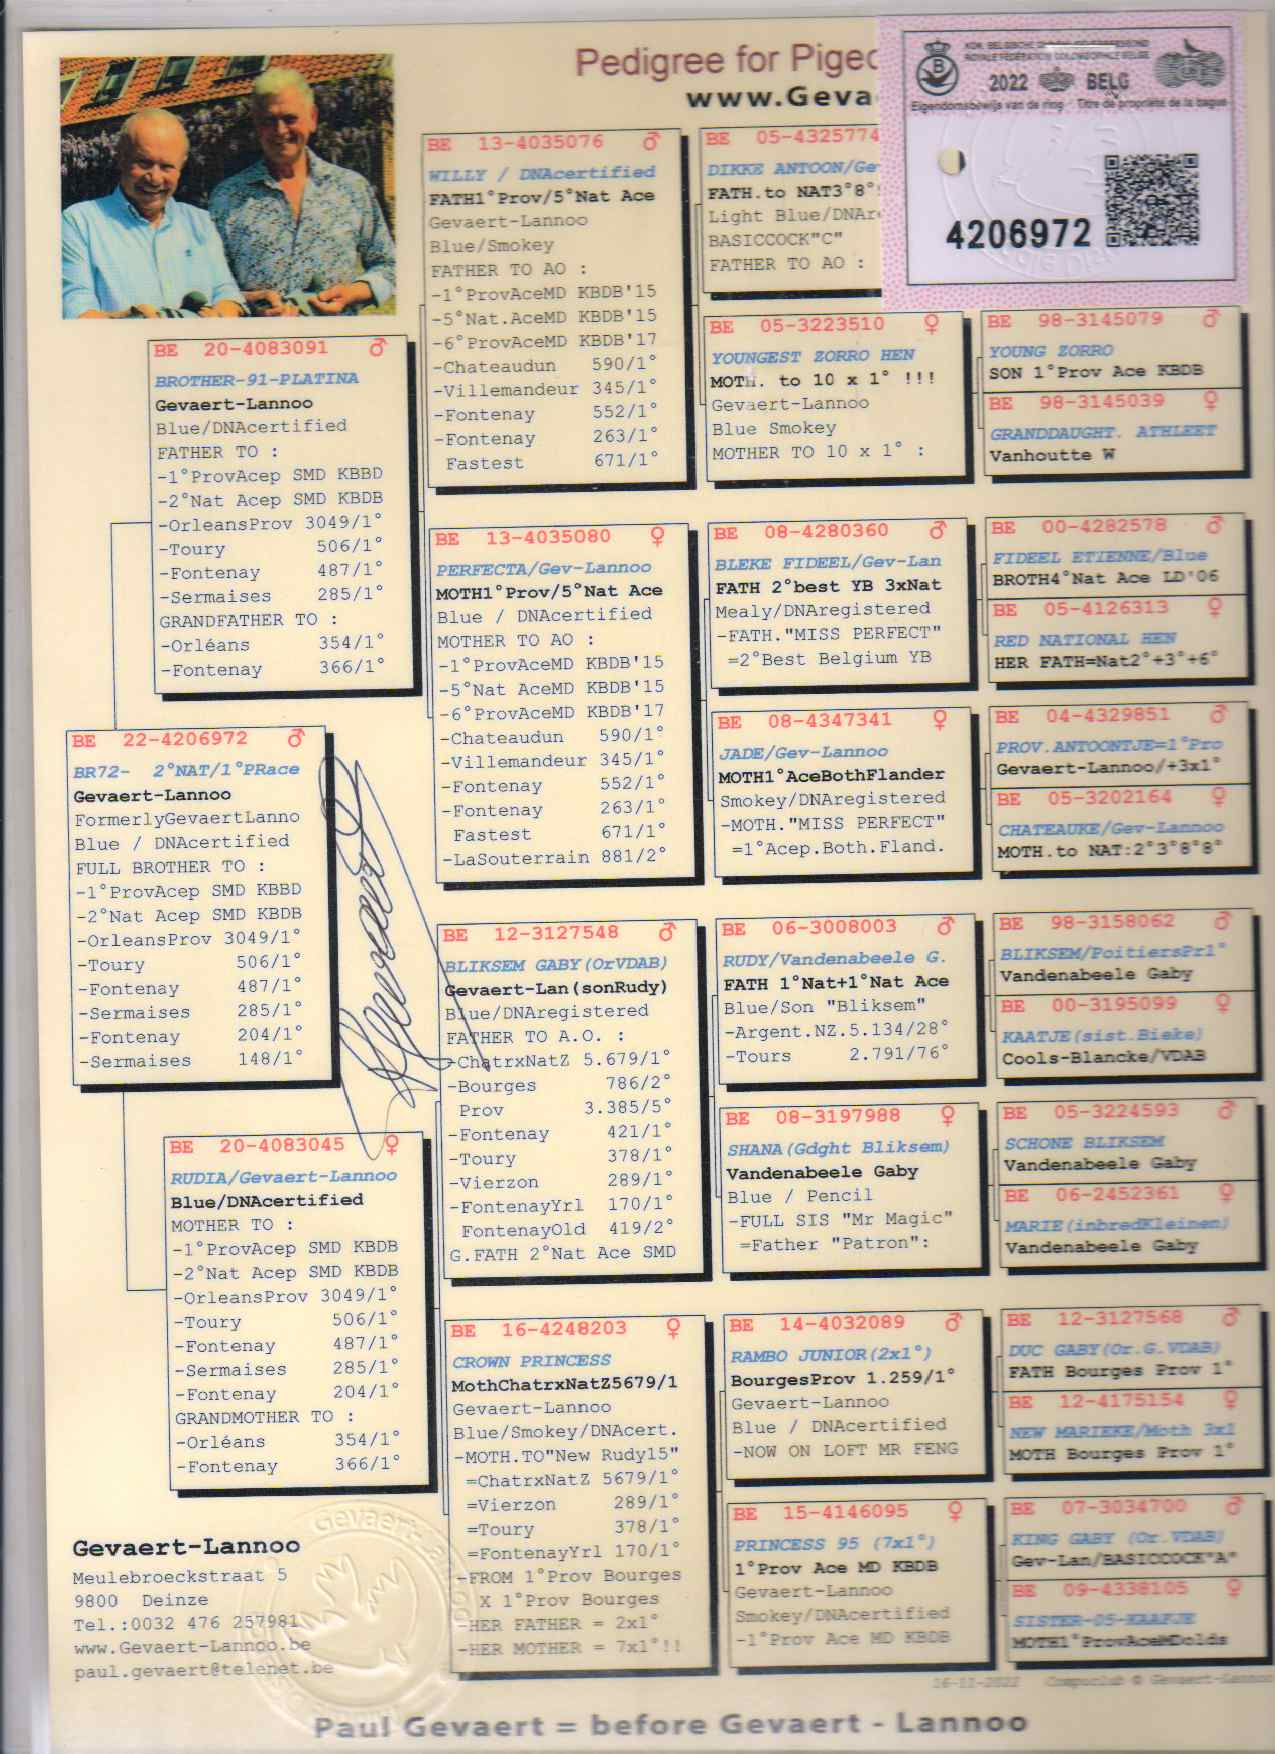 Pedigree for Pigeo
www.Geva
KON. BELGISCHE
2022 BELG
Eigendomsbewijs van de ring - Titre de propriété de la bague
4206972
BE 22-4206972 ♂
BR72- 2°NAT/1°PRace
Gevaert-Lannoo
FormerlyGevaertLanno
Blue / DNAcertified
FULL BROTHER TO :
-1°ProvAcep SMD KBBD
-2°Nat Acep SMD KBDB
-OrleansProv 3049/1°
-Toury 506/1°
-Fontenay 487/1°
-Sermaises 285/1
-Fontenay 204/1°
-Sermaises 148/1°
BE 20-4083091 ♂
BROTHER-91-PLATINA
Gevaert-Lannoo
Blue/DNAcertified
FATHER TO :
-1°ProvAcep SMD KBBD
-2°Nat Acep SMD KBDB
-OrleansProv 3049/1°
-Toury 506/1°
-Fontenay 487/1°
-Sermaises 285/1°
GRANDFATHER TO :
-Orléans 354/1°
-Fontenay 366/1°
BE 20-4083045 ♀
RUDIA/Gevaert-Lannoo
Blue/DNAcertified
MOTHER TO :
-1°ProvAcep SMD KBDB
-2°Nat Acep SMD KBDB
-OrleansProv 3049/1°
-Toury 506/1°
-Fontenay 487/1°
-Sermaises 285/1°
-Fontenay 204/1°
GRANDMOTHER TO :
-Orléans 354/1°
-Fontenay 366/1°
BE 13-4035076 ♂
WILLY / DNAcertified
FATH1°Prov/5°Nat Ace
Gevaert-Lannoo
Blue/Smokey
FATHER TO AO :
-1°ProvAceMD KBDB'15
-5°Nat.AceMD KBDB'15
-6°ProvAceMD KBDB'17
-Chateaudun 590/1°
-Villemandeur 345/1°
-Fontenay 552/1°
-Fontenay 263/1°
Fastest 671/1°
BE 13-4035080 ♀
PERFECTA/Gev-Lannoo
MOTH1°Prov/5°Nat Ace
Blue / DNAcertified
MOTHER TO AO :
-1°ProvAceMD KBDB'15
-5°Nat AceMD KBDB'15
-6°ProvAceMD KBDB'17
-Chateaudun 590/1°
-Villemandeur 345/1°
-Fontenay 552/1°
-Fontenay 263/1°
Fastest 671/1°
-LaSouterrain 881/2°
BE 12-3127548 ♂
BLIKSEM GABY(OrVDAB)
Gevaert-Lan(sonRudy)
Blue/DNAregistered
FATHER TO A.O. :
-ChatrxNatZ 5.679/1°
-Bourges 786/2°
Prov 3.385/5°
-Fontenay 421/1°
-Toury 378/1°
-Vierzon 289/1°
-FontenayYrl 170/1°
FontenayOld 419/2°
G.FATH 2°Nat Ace SMD
BE 16-4248203 ♀
CROWN PRINCESS
MothChatrxNatZ5679/1
Gevaert-Lannoo
Blue/Smokey/DNAcert.
-MOTH.TO"New Rudy15"
=ChatrxNatZ 5679/1°
=Vierzon 289/1°
=Toury 378/1°
=FontenayYrl 170/1°
-FROM 1°Prov Bourges
X 1°Prov Bourges
-HER FATHER = 2x1°
-HER MOTHER = 7x1°!!
BE 05-4325774
DIKKE ANTOON/Ge
FATH.to NAT3°8°
Light Blue/DNAr
BASICCOCK"C"
FATHER TO AO :
BE 05-3223510 ♀
YOUNGEST ZORRO HEN
MOTH. to 10 x 1° !!!
Gevaert-Lannoo
Blue Smokey
MOTHER TO 10 x 1° :
BE 08-4280360 ♂
BLEKE FIDEEL/Gev-Lan
FATH 2°best YB 3xNat
Mealy/DNAregistered
-FATH."MISS PERFECT"
=2°Best Belgium YB
BE 08-4347341 ♀
JADE/Gev-Lannoo
MOTH1°AceBothFlander
Smokey/DNAregistered
-MOTH."MISS PERFECT"
=1°Acep.Both.Fland.
BE 06-3008003 ♂
RUDY/Vandenabeele G.
FATH 1°Nat+1°Nat Ace
Blue/Son "Bliksem"
-Argent.NZ.5.134/28°
-Tours 2.791/76°
BE 08-3197988 ♀
SHANA(Gdght Bliksem)
Vandenabeele Gaby
Blue / Pencil
-FULL SIS "Mr Magic"
=Father "Patron":
BE 14-4032089 ♂
RAMBO JUNIOR(2x1°)
BourgesProv 1.259/1°
Gevaert-Lannoo
Blue / DNAcertified
-NOW ON LOFT MR FENG
BE 15-4146095 ♀
PRINCESS 95 (7x1°)
1°Prov Ace MD KBDB
Gevaert-Lannoo
Smokey/DNAcertified
-1°Prov Ace MD KBDB
BE 98-3145079 ♂
YOUNG ZORRO
SON 1°Prov Ace KBDB
BE 98-3145039 ♀
GRANDDAUGHT. ATHLEET
Vanhoutte W
BE 00-4282578 ♂
FIDEEL ETIENNE/Blue
BROTH4°Nat Ace LD'06
BE 05-4126313 ♀
RED NATIONAL HEN
HER FATH=Nat2°+3°+6°
BE 04-4329851 ♂
PROV.ANTOONTJE=1°Pro
Gevaert-Lannoo/+3x1°
BE 05-3202164 ♀
CHATEAUKE/Gev-Lannoo
MOTH.to NAT:2°3°8°8°
BE 98-3158062 ♂
BLIKSEM/PoitiersPr1°
Vandenabeele Gaby
BE 00-3195099 ♀
KAATJE(sist.Bieke)
Cools-Blancke/VDAB
BE 05-3224593 ♂
SCHONE BLIKSEM
Vandenabeele Gaby
BE 06-2452361 ♀
MARIE(inbredKleinen)
Vandenabeele Gaby
BE 12-3127568 ♂
DUC GABY(Or.G.VDAB)
FATH Bourges Prov 1°
BE 12-4175154 ♀
NEW MARIEKE/Moth 3x1
MOTH Bourges Prov 1°
BE 07-3034700 ♂
KING GABY (Or.VDAB)
Gev-Lan/BASICCOCK"A"
BE 09-4338105 ♀
SISTER-05-KAAFJE
MOTH1°ProvAceMDolds
Gevaert-Lannoo
Meulebroeckstraat 5
9800 Deinze
Tel.:0032 476 257981
www.Gevaert-Lannoo.be
paul.gevaert@telenet.be
16-11-2022 Compuclub © Gevaert-Lannoo
Paul Gevaert = before Gevaert - Lannoo